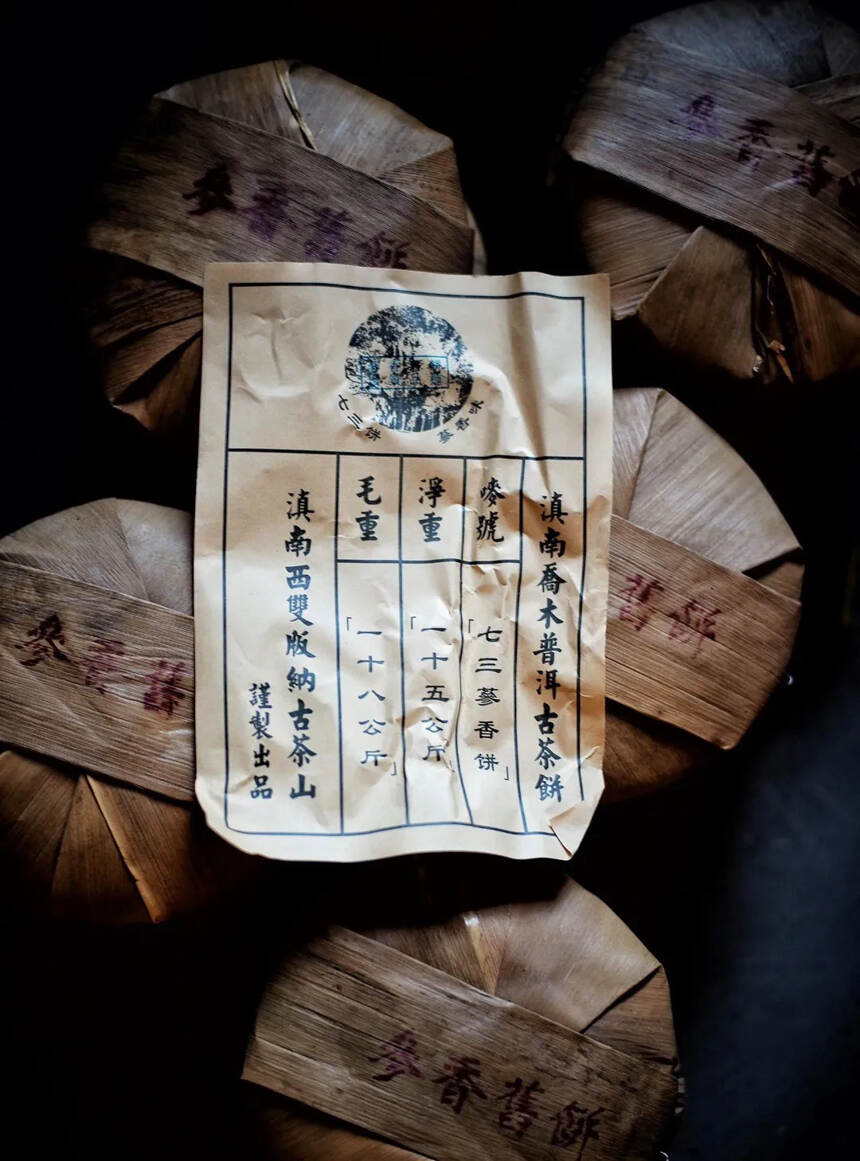 參香舊餅
參香舊
七三餅
蔘香味
滇南喬木普洱古茶餅
嘜號
「七三蔘香饼」
淨重
「一十五公斤」
毛重
「一十八公斤」
滇南西雙版納古茶山
謹製出品
參香舊
舊餅
參香舊餅